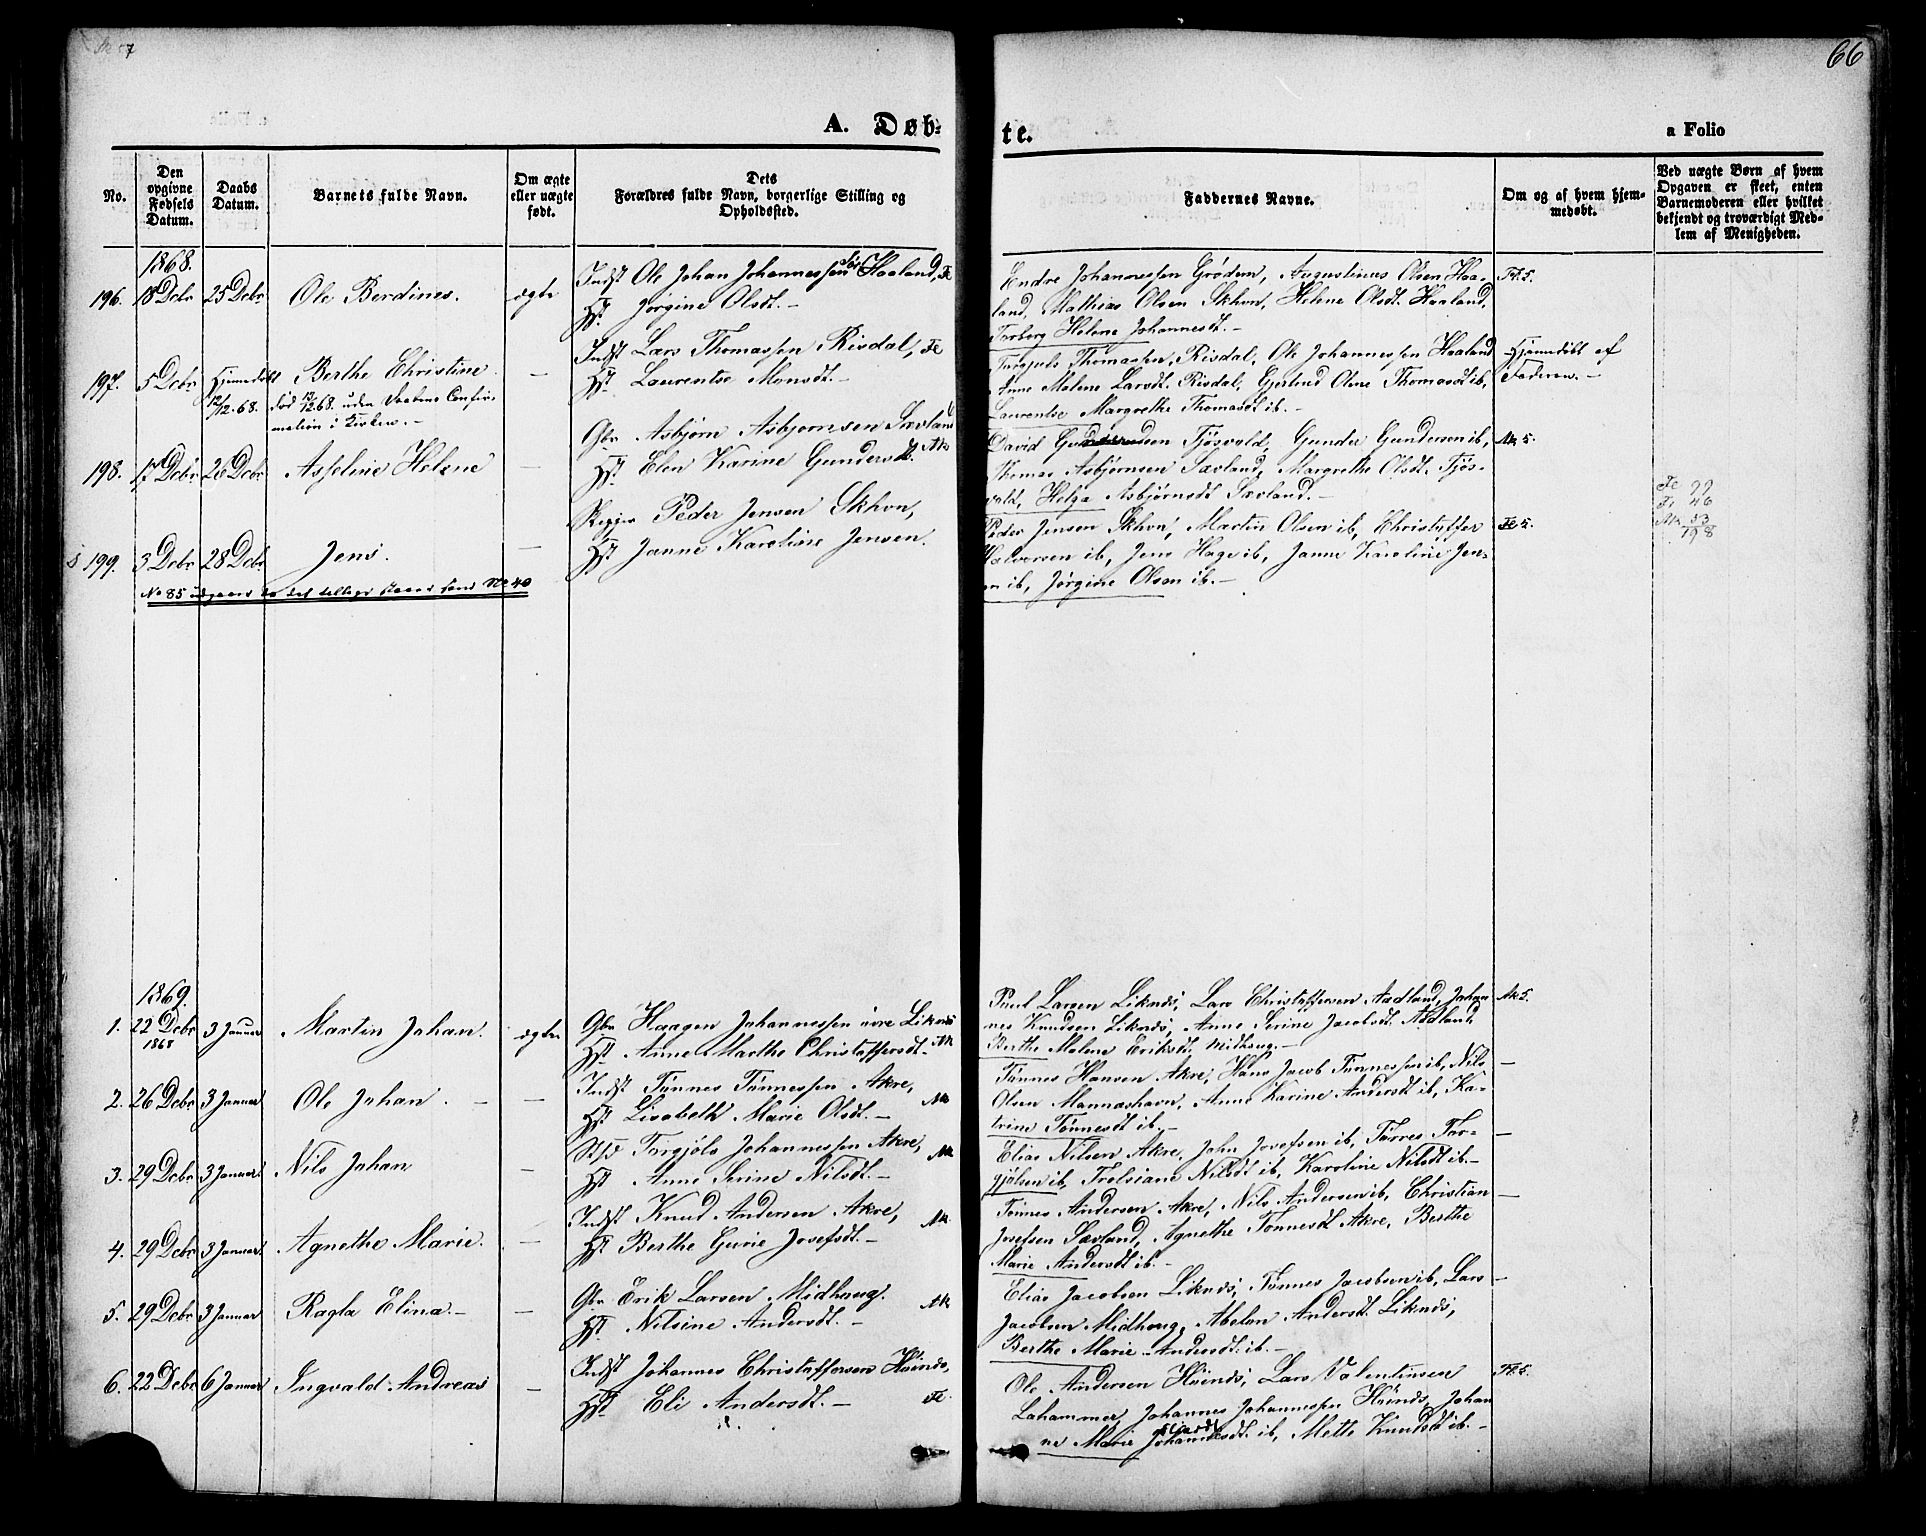 66
A. Døb-
te.
a Folio
No.
Den opgivne Fødsels Datum.
Daabs Datum.
Barnets fulde Navn.
Om ægte eller uægte født.
Dets Forældres fulde Navn, borgerlige Stilling og Opholdssted.
Faddernes Navne.
Om og af hvem hjem-medøbt.
Ved uægte Børn af hvem
Opgaven er skeet, enten
Barnemoderen eller hvilket
bekjendt og troværdigt Med-
lem af Menigheden.
1868.
196. 18 Debr 25 Debr Ole Berdines. ægte
Indst Ole Johan Johannessen Haaland, Fe
Hst. Jørgine Olsdt. –
Endre Johannessen Grødem, Augustinus Olsen Haa-
land, Mathias Olsen Skhvn, Helene Olsdt. Haaland,
Torborg Helene Johannesdt. –
Fe. 5.
197. 5 Debr Hjemedøbt 12/12.68. Berthe Christine. –
Indst Lars Thomassen Risdal, Fe
Hst. Laurentse Monsdt. –
Thomassen, Risdal, Ole Johannessen Haaland
Anne Malene Larsdt. Risdal, Gjerlend Oline Thomasdt ib,
Laurentse Margrethe Thomasdt ib. –
Hjemmedøbt af
Faderen. –
198. 17 Debr 26 Debr Asseline Helene –
Gbr Asbjørn Asbjørnsen Sævland
Hst. Elen Karine Gundersdt. Ak
David Gundersen Tjøsvold, Gunder Gundersen ib,
Thomas Asbjørnsen Sævland, Margrethe Olsdt. Tjøs-
vold, Helga Asbjørnsdt Sævland. –
Ak 5.
S 199. 3 Debr 28 Debr Jens. –
Peder Jensen Skhvn,
Hst. Janne Karoline Jensen.
Peder Jensen Skhvn, Martin Olsen ib, Christoffer
Halvorsen ib, Jens Hage ib, Janne Karoline Jen-
sen ib, Jørgine Olsen ib. –
Fe 5.
Fe 99
Fr 46
Ak 53
198
No 85 udgaaer da det tillige staaer som No 40
1869.
1. 22 Debr 1868 3 Januar Martin Johan. ægte
Gbr Haagen Johannessen Liknes
Hst. Anne Marthe Christoffersdt. – Ak
Poul Larsen Liknes, Lars Christoffersen Aadland, Johan
nes Knudsen Liknes, Anne Serine Jacobsdt. Aadland
Berthe Malene Eriksdt. Midhaug. –
Ak 5.
2. 26 Debr 3 Januar Ole Johan. – –
Indst Tønnes Tønnessen Akre,
Hst. Lisabeth Marie Olsdt. – Ak
Tønnes Hansen Akre, Hans Jacob Tønnessen ib, Nils –
Olsen Mannæshavn, Anne Karine Andersdt ib, Ka-
trine Tønnesdt ib. –
3. 29 Debr 3 Januar Nils Johan –
Torgjøls Johannessen Akre, Ak
Hst Anne Serine Nilsdt. –
Elias Nilsen Akre, John Josefsen ib, Tørres Tor- –
gjølsen ib, Trelsiane Nilsdt ib, Karoline Nilsdt ib. –
4. 29 Debr 3 Januar. Agnethe Marie. –
Indst Knud Andersen Akre, Ak.
Hst. Berthe Gurie Josefsdt. –
Tønnes Andersen Akre, Nils Andersen ib, Christian –
Josefsen Sævland, Agnethe Tønnesdt Akre, Berthe
Marie Andersdt ib. –
5. 29 Debr 3 Januar Ragla Elina. – –
Gbr Erik Larsen Midhaug. Ak
Hst. Nilsine Andersdt. –
Elias Jacobsen Liknes, Tønnes Jacobsen ib, Lars –
Jacobsen Midhaug, Abelon Andersdt. Liknes,
Berthe Marie Andersdt. ib. –
6. 22 Debr 6 Januar Ingvald Andreas –
Indst Johannes Christoffersen Høines,
Hst. Eli Andersdt. – Fe.
Ole Andersen Høines, Lars Valentinsen
Lahammer, Johannes Johannessen Høines, Johan
ne Marie Johannesdt. ib, Mette Knudsdt ib. –
Fe. 5.